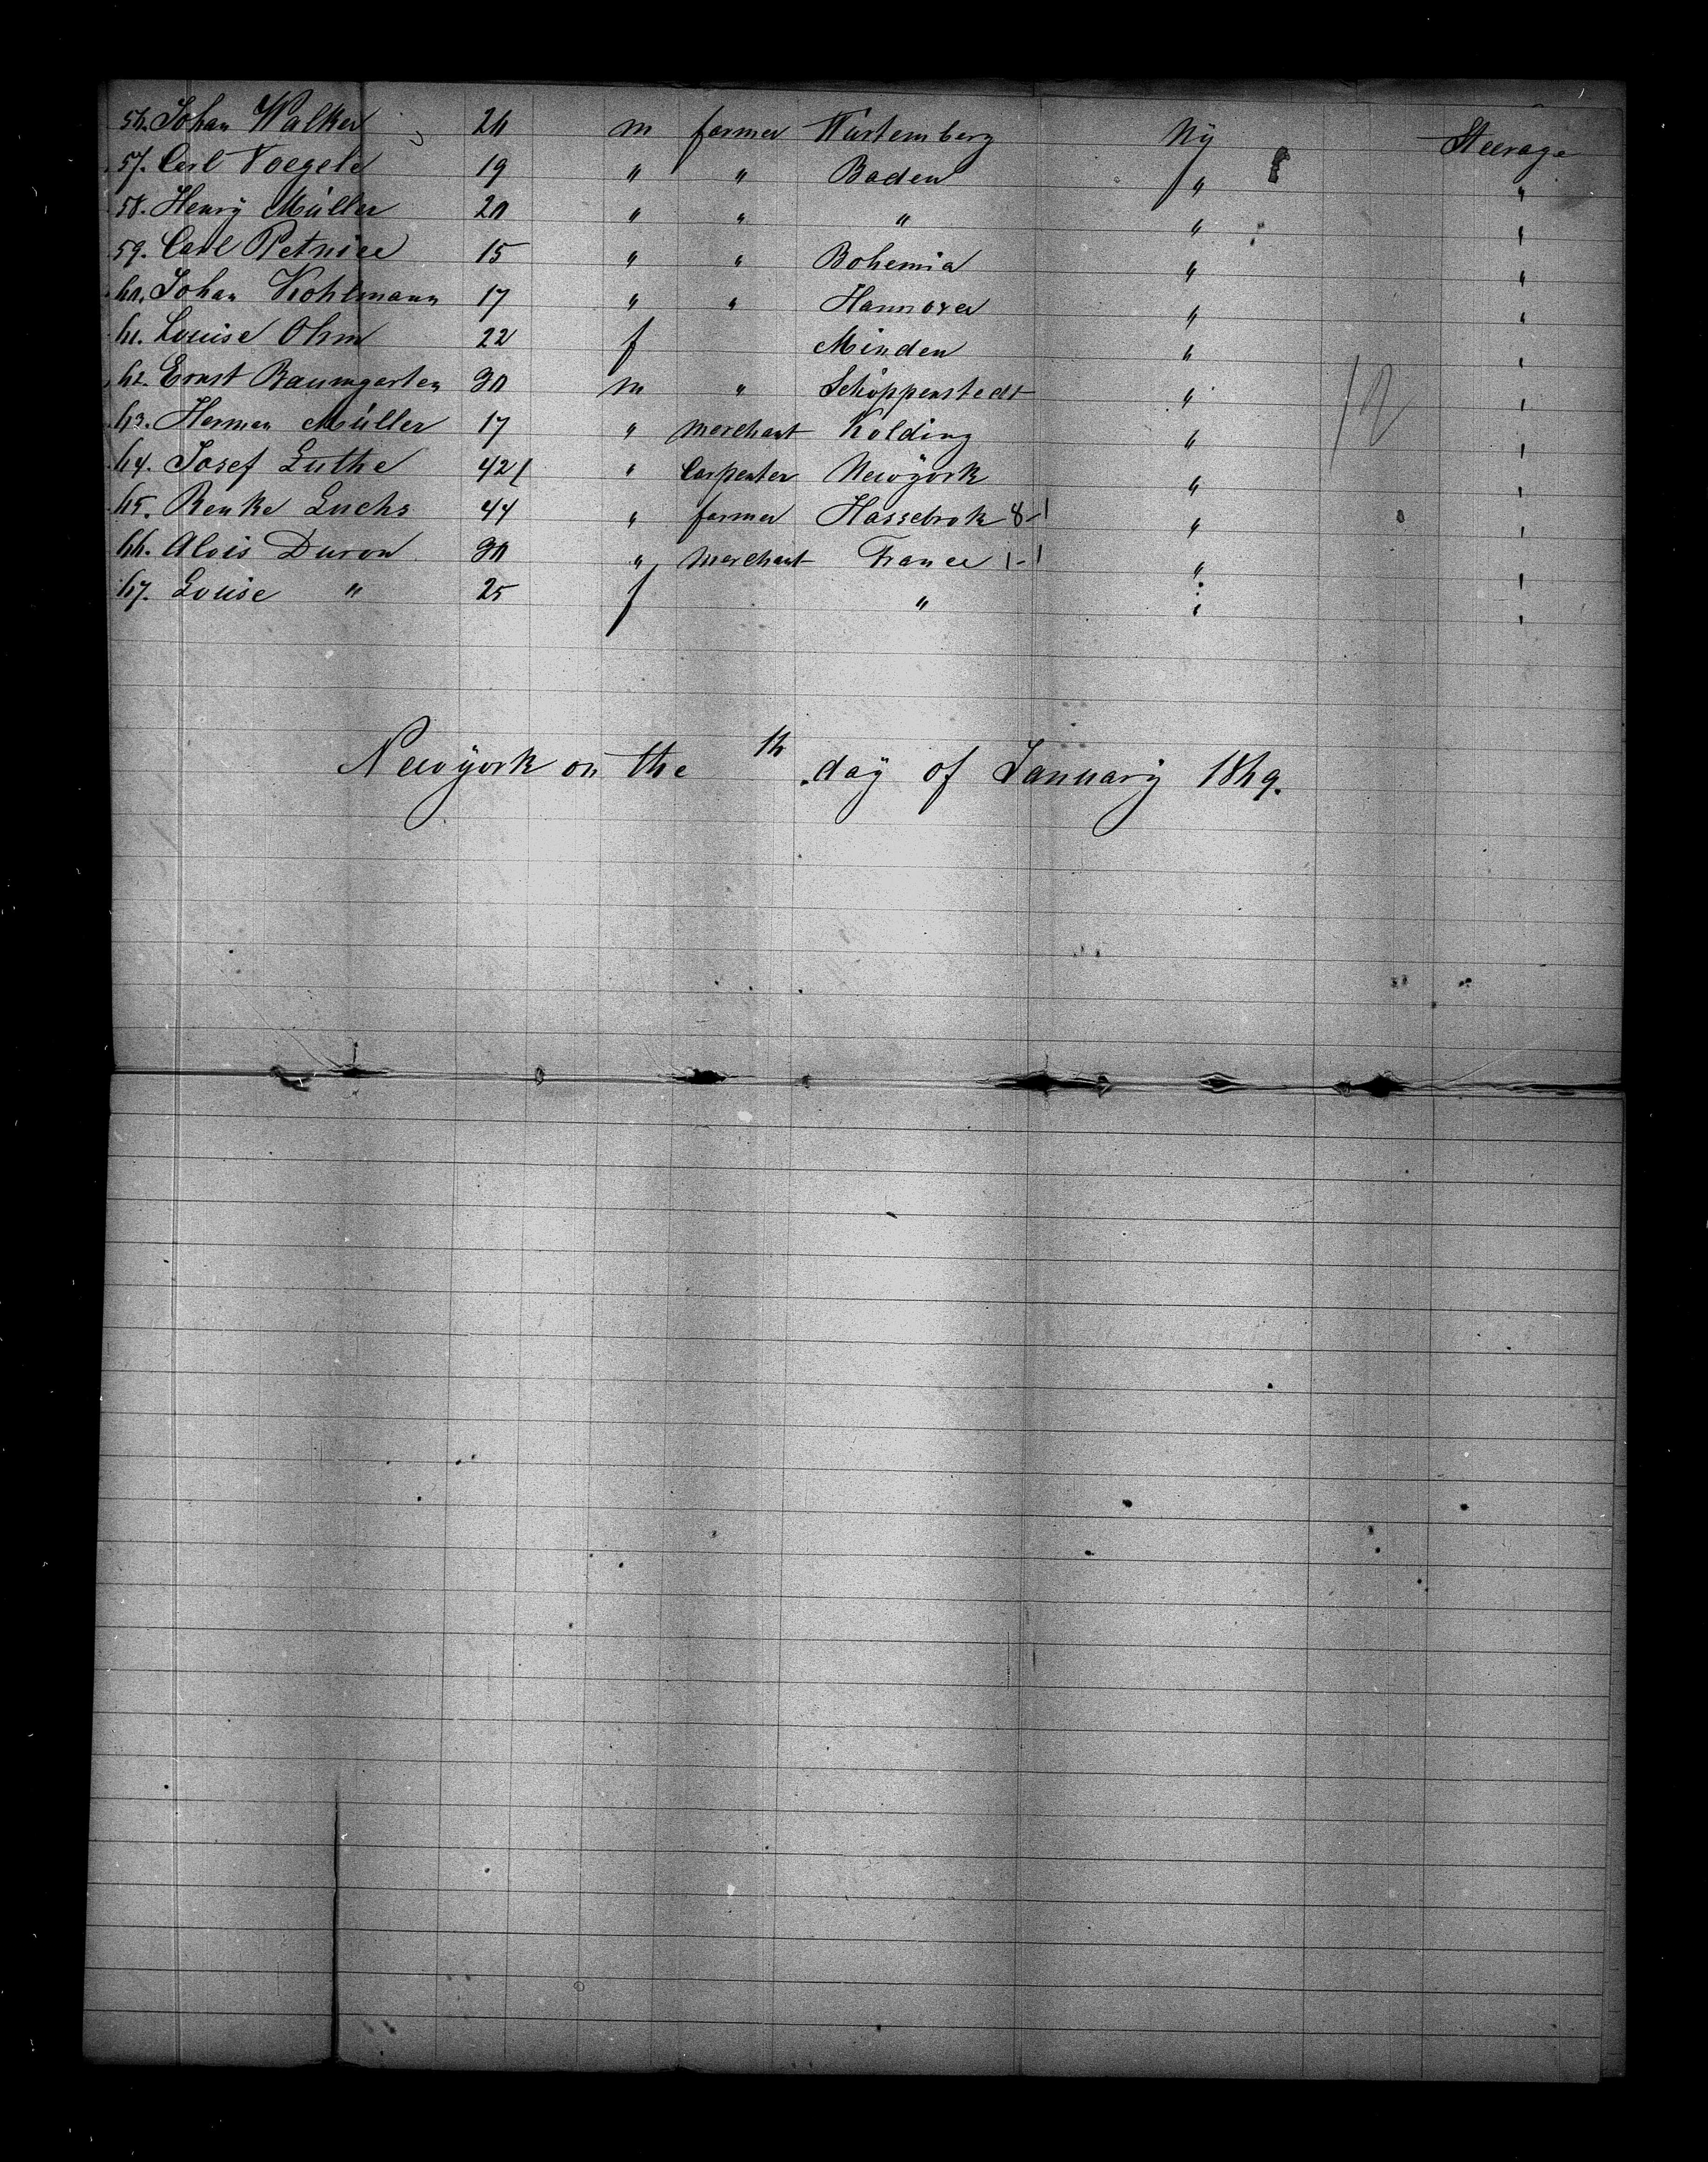 56. Johan Walker 26 m farmer Würtemberg Ny Steerage
57. Carl Voegele 19 " " Baden " "
58. Henry Müller 20 " " " " "
59. Carl Petnice 15 " " Bohemia " "
60. Johan Kohlmann 17 " " Hannover " "
61. Louise Ohm 22 f Minden " "
62. Ernst Baumgarten 30 m " Schöppenstedt " "
63. Herman Müller 17 " merchant Kolding " "
64. Josef Luthe 42 / " Carpenter Newyork " "
65. Renke Luchs 44 " farmer Hassebrok 8-1 " "
66. Alois Duron 30 " merchant France 1-1 " "
67. Louise " 25 f " " "
12
Newyork on the 16 day of January 1869.